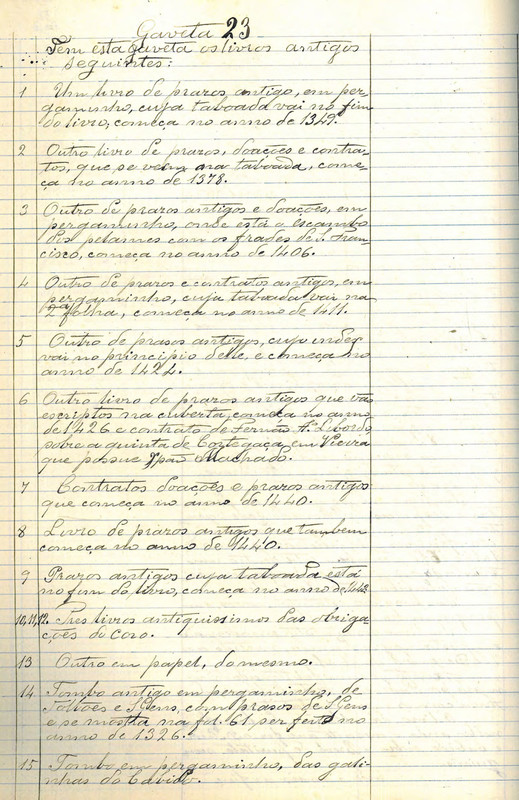 Gaveta 23
Tem esta gaveta os livros antigos
seguintes:
1 Um livro de prazos, antigo, em per-
gaminho, cuja taboada vai no fim
do livro, começa no anno de 1349.
2 Outro livro de prazos, doações e contra-
tos, que se vêm na taboada, come-
ça no anno de 1378.
3 Outro de prazos antigos e doações, em
pergaminho, onde está o escambo
dos pelames com os frades de S. Fran-
cisco, começa no anno de 1406.
4 Outro de prazos e contratos antigos, em
pergaminho, cuja taboada vai na
2ª folha, começa no anno de 1411.
5 Outro de prasos antigos, cujo index
vai no principio delle, e começa no
anno de 1424.
6 Outro livro de prazos antigos que vão
escriptos na cuberta, começa no anno
de 1426 e contrato de Fernão
sobre a quinta de Cortegaça, em Vieira
que possue João Machado.
7 Contratos doações e prazos antigos
que começa no anno de 1440.
8 Livro de prazos antigos que tambem
começa no anno de 1440.
9 Prazos antigos cuja taboada está
no fim do livro, começa no anno de 1442
10,11,12. Tres livros antiquissimos das obriga-
ções do coro.
13 Outro em papel, do mesmo.
14 Tombo antigo em pergaminho, de
e S. Gens, com prasos de S. Gens
e se mostra na fol. 61, ser feito no
anno de 1326.
15 Tombo em pergaminho, das gali-
nhas do Cabido.